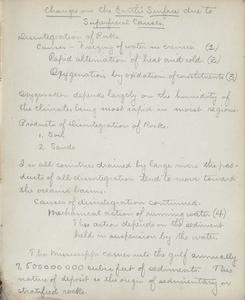 Changes on the Earth's Surface due to
Superficial Causes.
Disintegration of Rock.
Causes - Freezing of water in crevices (1)
Rapid alternation of heat and cold (2)
Oxygenation by oxidation of constituents (3)
Oxygenation depends largely on the humidity of
the climate, being most rapid in moist regions.
Products of Disintegration of Rocks.
1. Soil
2. Sands
In all countries drained by large rivers the pro-
ducts of all disintegration tend to move toward
the oceanic basins.
Causes of disintegration continued.
Mechanical action of running water (4)
The action depends on the sediment
held in suspension by the water.
The Mississippi carries into the gulf annually
7,500000000 cubic feet of sediments. This
nature of deposit is the origin of sedimentary or
stratified rocks.